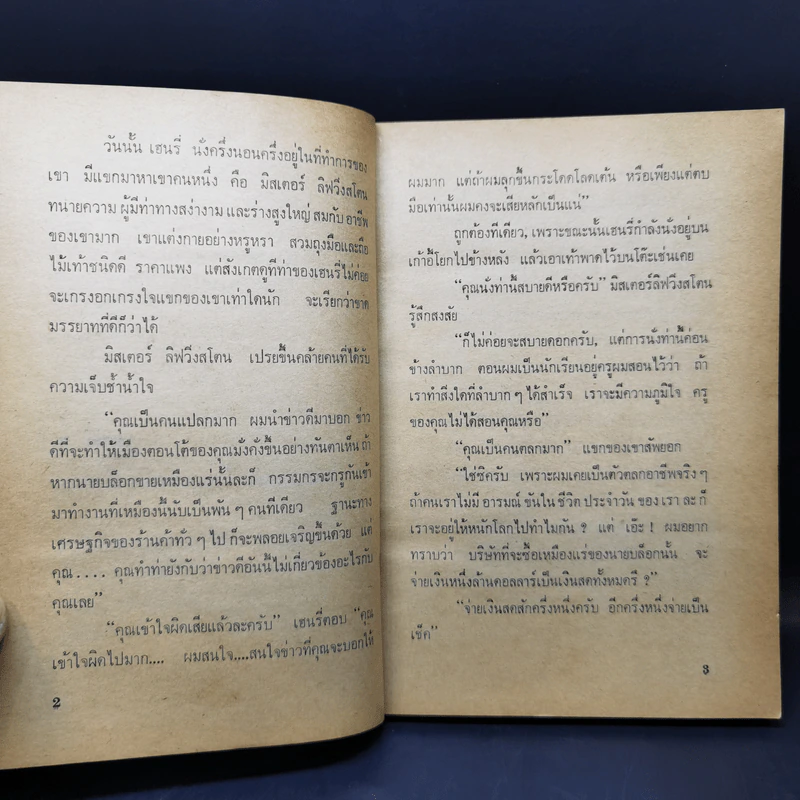 วันนั้น เฮนรี่ นั่งครึ่งนอนครึ่งอยู่ในที่ทำการของ
เขา มีแขกมาหาเขาคนหนึ่ง คือ มิสเตอร์ ลิฟวิ่งสโตน
ทนายความ ผู้มีท่าทางสง่างาม และร่างสูงใหญ่ สมกับ อาชีพ
ของเขามาก เขาแต่งกายอย่างหรูหรา สวมถุงมือและถือ
ไม้เท้าชนิดดี ราคาแพง แต่สังเกตดูทีท่าของเฮนรี่ไม่ค่อย
จะเกรงอกเกรงใจแขกของเขาเท่าใดนัก จะเรียกว่าขาด
มรรยาทที่ดีก็ว่าได้
มิสเตอร์ ลิฟวิ่งสโตน เปรยขึ้นคล้ายคนที่ได้รับ
ความเจ็บช้ำน้ำใจ
“คุณเป็นคนแปลกมาก ผมนำข่าวดีมาบอก ข่าว
ดีที่จะทำให้เมืองตอนโต้ของคุณมั่งคั่งขึ้นอย่างทันตาเห็น ถ้า
หากนายบล็อกขายเหมืองแร่นั้นละก็ กรรมกรจะกรูกันเข้า
มาทำงานที่เหมืองนี้นับเป็นพัน ๆ คนทีเดียว ฐานะทาง
เศรษฐกิจของร้านค้าทั่ว ๆ ไป ก็จะพลอยเจริญขึ้นด้วย แต่
คุณ . . . . คุณทำท่ายังกับว่าข่าวดีอันนี้ไม่เกี่ยวข้องอะไรกับ
คุณเลย”
“คุณเข้าใจผิดเสียแล้วละครับ” เฮนรี่ตอบ “คุณ
เข้าใจผิดไปมาก.... ผมสนใจ....สนใจข่าวที่คุณจะบอกให้
2
ผมมาก แต่ถ้าผมลุกขึ้นกระโดดโลดเต้น หรือเพียงแต่ตบ
มือเท่านั้นผมคงจะเสียหลักเป็นแน่”
ถูกต้องทีเดียว, เพราะขณะนั้นเฮนรี่กำลังนั่งอยู่บน
เก้าอี้โยกไปข้างหลัง แล้วเอาเท้าพาดไว้บนโต๊ะเช่นเคย
“คุณนั่งท่านี้สบายดีหรือครับ” มิสเตอร์ลิฟวิ่งสโตน
รู้สึกสงสัย
“ก็ไม่ค่อยจะสบายดอกครับ, แต่การนั่งท่านี้ค่อน
ข้างลำบาก ตอนผมเป็นนักเรียนอยู่ครูผมสอนไว้ว่า ถ้า
เราทำสิ่งใดที่ลำบาก ๆ ได้สำเร็จ เราจะมีความภูมิใจ ครู
ของคุณไม่ได้สอนคุณหรือ”
“คุณเป็นคนตลกมาก” แขกของเขาสัพยอก
“ใช่ซิครับ เพราะผมเคยเป็นตัวตลกอาชีพจริง ๆ
ถ้าคนเราไม่มี อารมณ์ ขันใน ชีวิต ประจำวัน ของ เรา ละ ก็
เราจะอยู่ให้หนักโลกไปทำไมกัน ? แต่ เอ๊ะ ! ผมอยาก
ทราบว่า บริษัทที่จะซื้อเหมืองแร่ของนายบล็อกนั้น จะ
จ่ายเงินหนึ่งล้านดอลลาร์เป็นเงินสดทั้งหมดรึ ?”
“จ่ายเงินสดสักครึ่งหนึ่งครับ อีกครึ่งหนึ่งจ่ายเป็น
เช็ค”
3